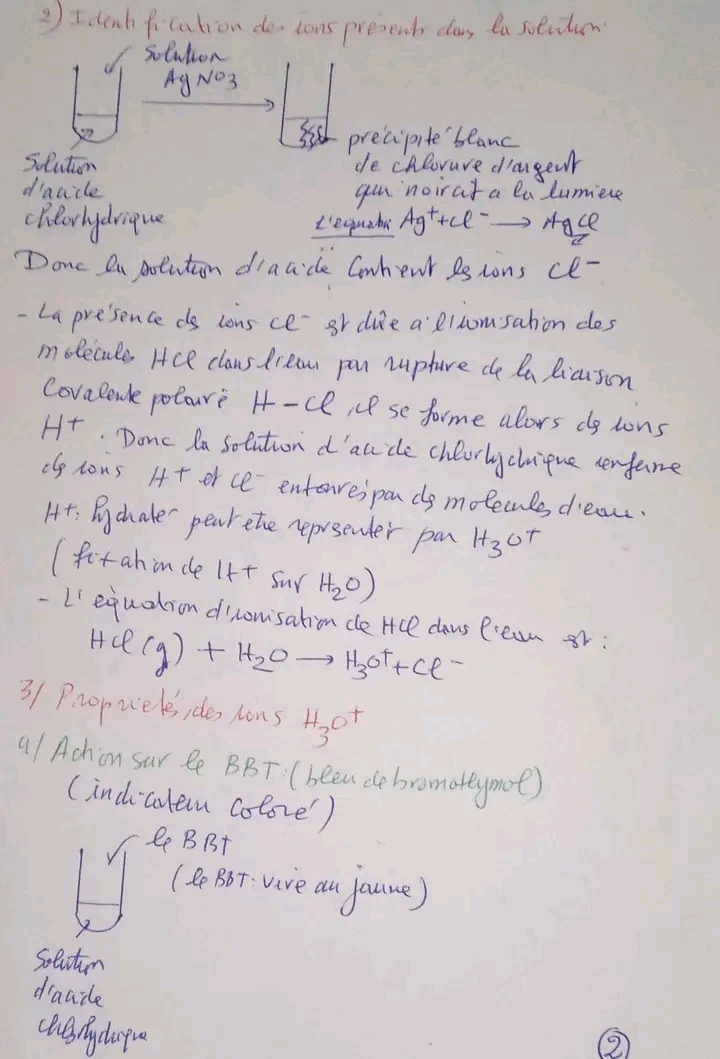 2) Identification des ions présents dans la solution.
Solution
AgNO3
précipité blanc
de chlorure d'argent
qui noircit a la lumière
Solution
d'acide
chlorhydrique
L'equation Ag+ + Cl- → AgCl
Donc la solution d'acide Contient les ions Cl-
- La présence des ions Cl- est dûe a l'ionisation des
molécules HCl dans l'eau par rupture de la liaison
Covalente polaire H-Cl, il se forme alors des ions
H+. Donc la solution d'acide chlorhydrique renferme
des ions H+ et Cl- entourés par des molécules d'eau.
H+: hydrater peut etre représenter par H3O+
(fixation de H+ sur H2O)
- L'équation d'ionisation de HCl dans l'eau est :
HCl(g) + H2O → H3O+ + Cl-
3/ Proprietés des ions H3O+
a/ Action sur le BBT: (bleu de bromothymol)
(indicateur Coloré)
le BBT
(le BBT: vire au jaune)
Solution
d'acide
chlorhydrique
2